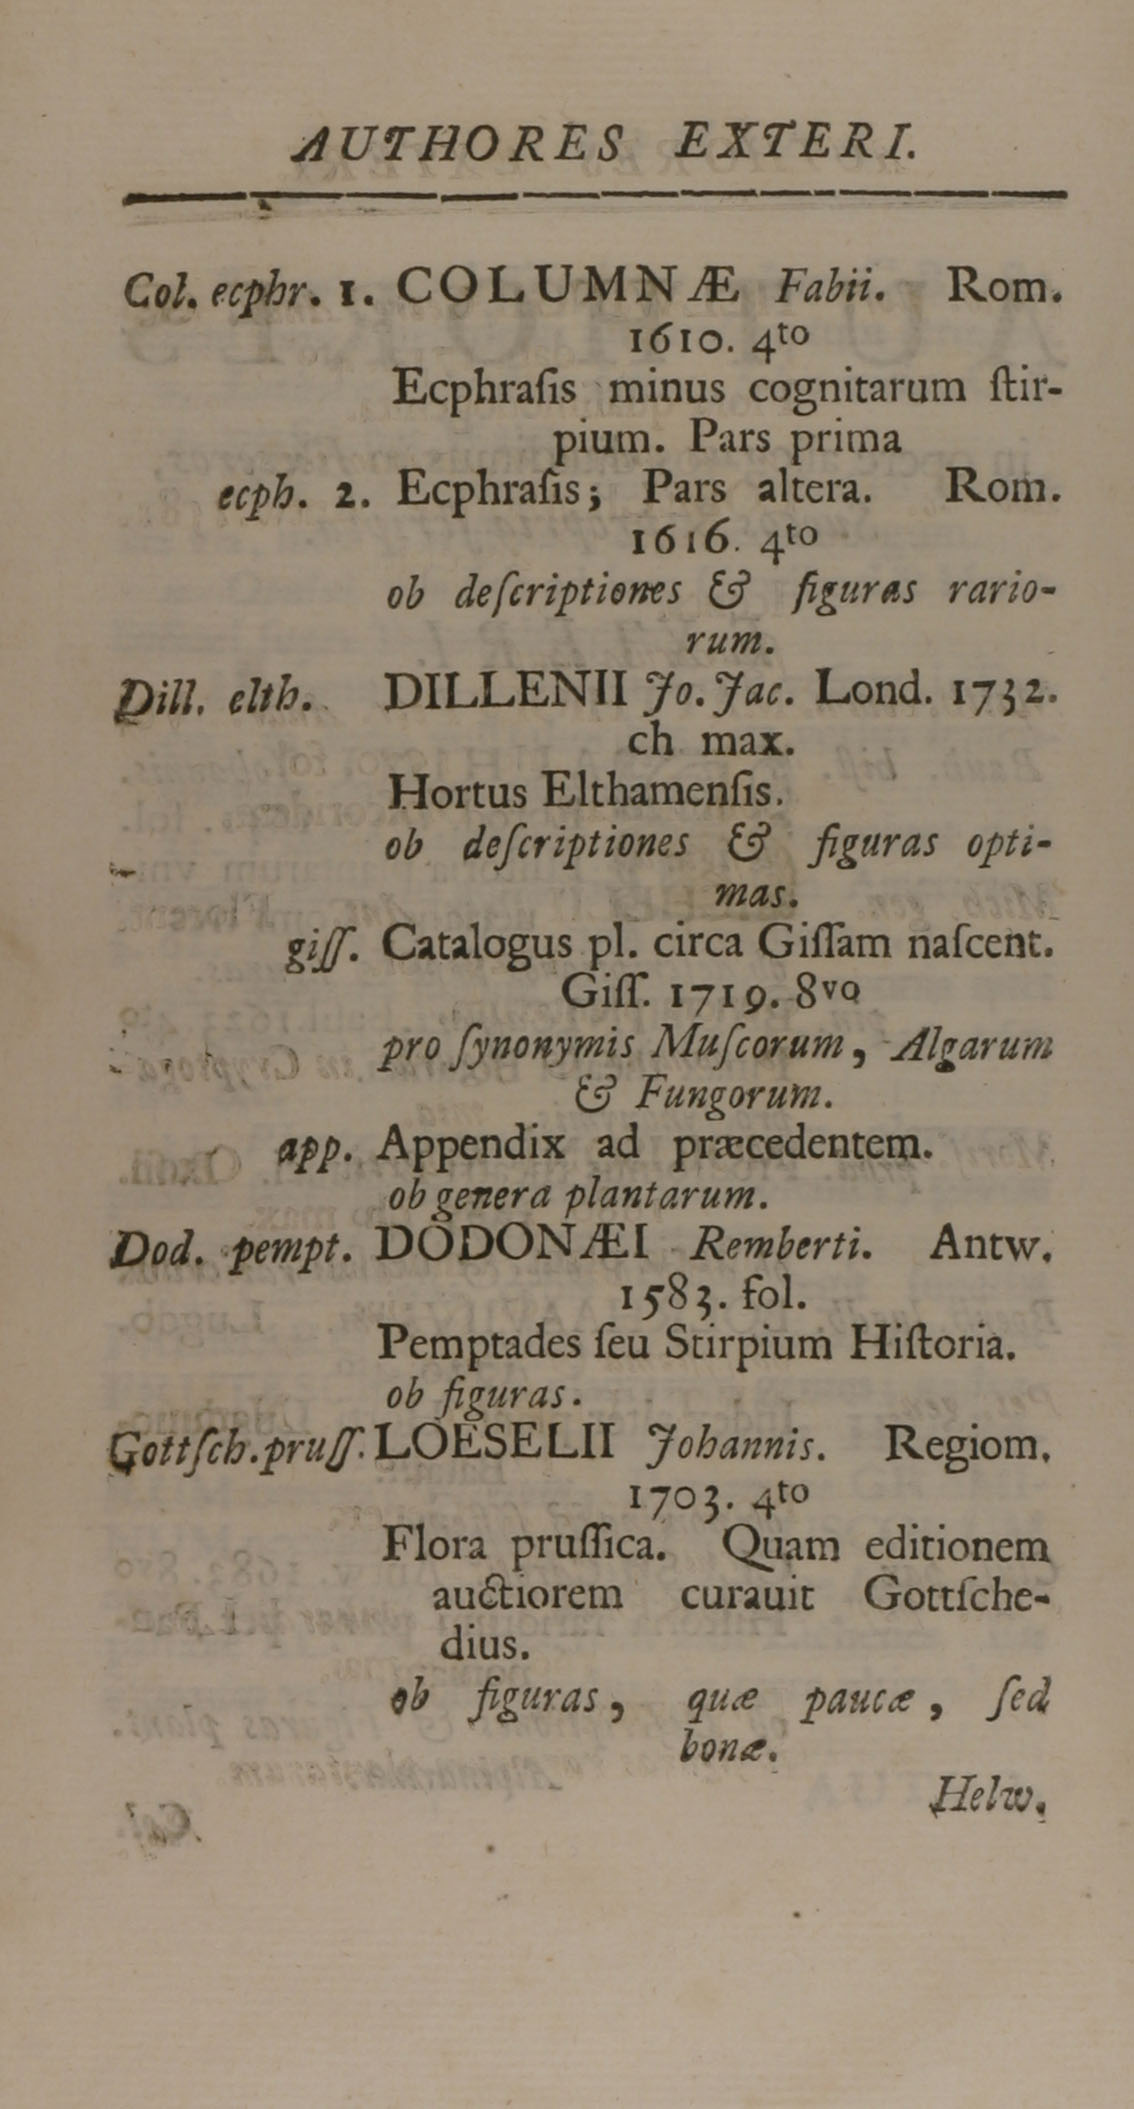 AUTHORES EXTERI.
Col. ecphr. 1. COLUMNÆ Fabii. Rom.
1610. 4to
Ecphraſis minus cognitarum ſtir-
pium. Pars prima
ecph. 2. Ecphraſis; Pars altera. Rom.
1616. 4to
ob deſcriptiones & figuras rario-
rum.
Dill. elth. DILLENII Jo. Jac. Lond. 1732.
ch max.
Hortus Elthamenſis.
ob deſcriptiones & figuras opti-
mas.
giſſ. Catalogus pl. circa Giſſam naſcent.
Giſſ. 1719. 8vo
pro ſynonymis Muſcorum, Algarum
& Fungorum.
app. Appendix ad præcedentem.
ob genera plantarum.
Dod. pempt. DODONÆI Remberti. Antw.
1583. fol.
Pemptades ſeu Stirpium Hiſtoria.
ob figuras.
Gottſch. pruſſ. LOESELII Johannis. Regiom.
1703. 4to
Flora pruſſica. Quam editionem
auctiorem curauit Gottſche-
dius.
ob figuras, quæ paucæ, ſed
bonæ.
Helw.